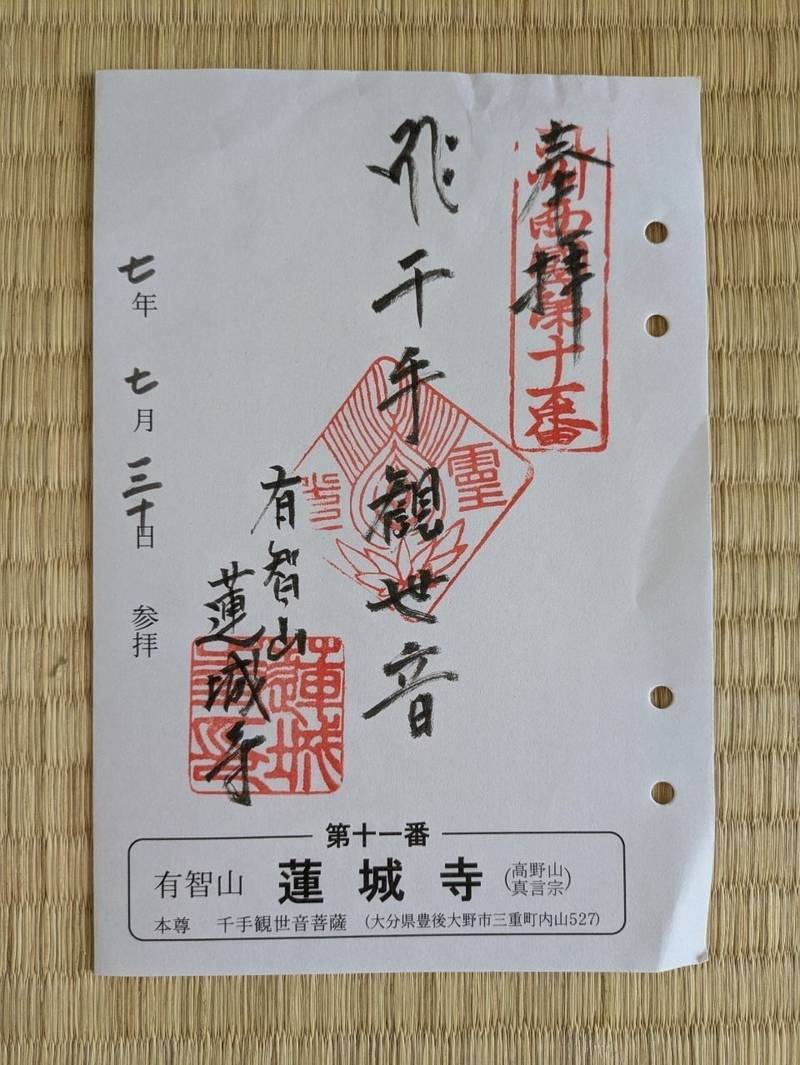 奉拝
九州西國第十一番
千手観世音
靈
有智山
蓮城寺
蓮城寺印
七年 七月 三十日 参拝
第十一番
有智山 蓮城寺 (高野山真言宗)
本尊 千手観世音菩薩 (大分県豊後大野市三重町内山527)